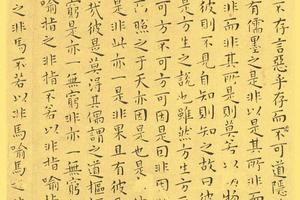 不存言惡乎存而不可道隱
有儒墨之是非以是其所非而
非而非其所是則莫若以物
彼則不見自知則知之故曰彼
方生之說也雖然方生方
可方不可方可因是因非因
照之于天亦因是也是
是非此亦一是非果且有彼
哉彼是莫得其偶謂之道樞
窮是亦一無窮非亦一無窮
喻指之非指不若以非指喻指
之非馬不若以非馬喻馬之